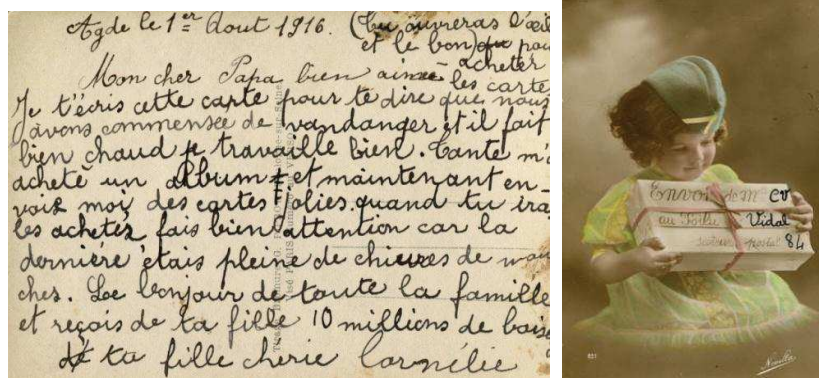 Agde le 1er Aout 1916. (tu ouvreras l'œil
et le bon) pour
acheter
Mon cher Papa bien aimé les carte
Je t'écris cette carte pour te dire que nous
avons commensée de vandanger et il fait
bien chaud je travaille bien. Tante m'a
acheté un album et maintenant en-
vois moi des cartes jolies. quand tu ira
les acheter fais bien attention car la
dernière étais pleine de chiures de mou
ches. Le bonjour de toute la famille
et reçois de ta fille 10 millions de baise
ta fille cherie Cornélie
Envoi de M CV
au Poilu Vidal
secteur postal 84
821
Noyella